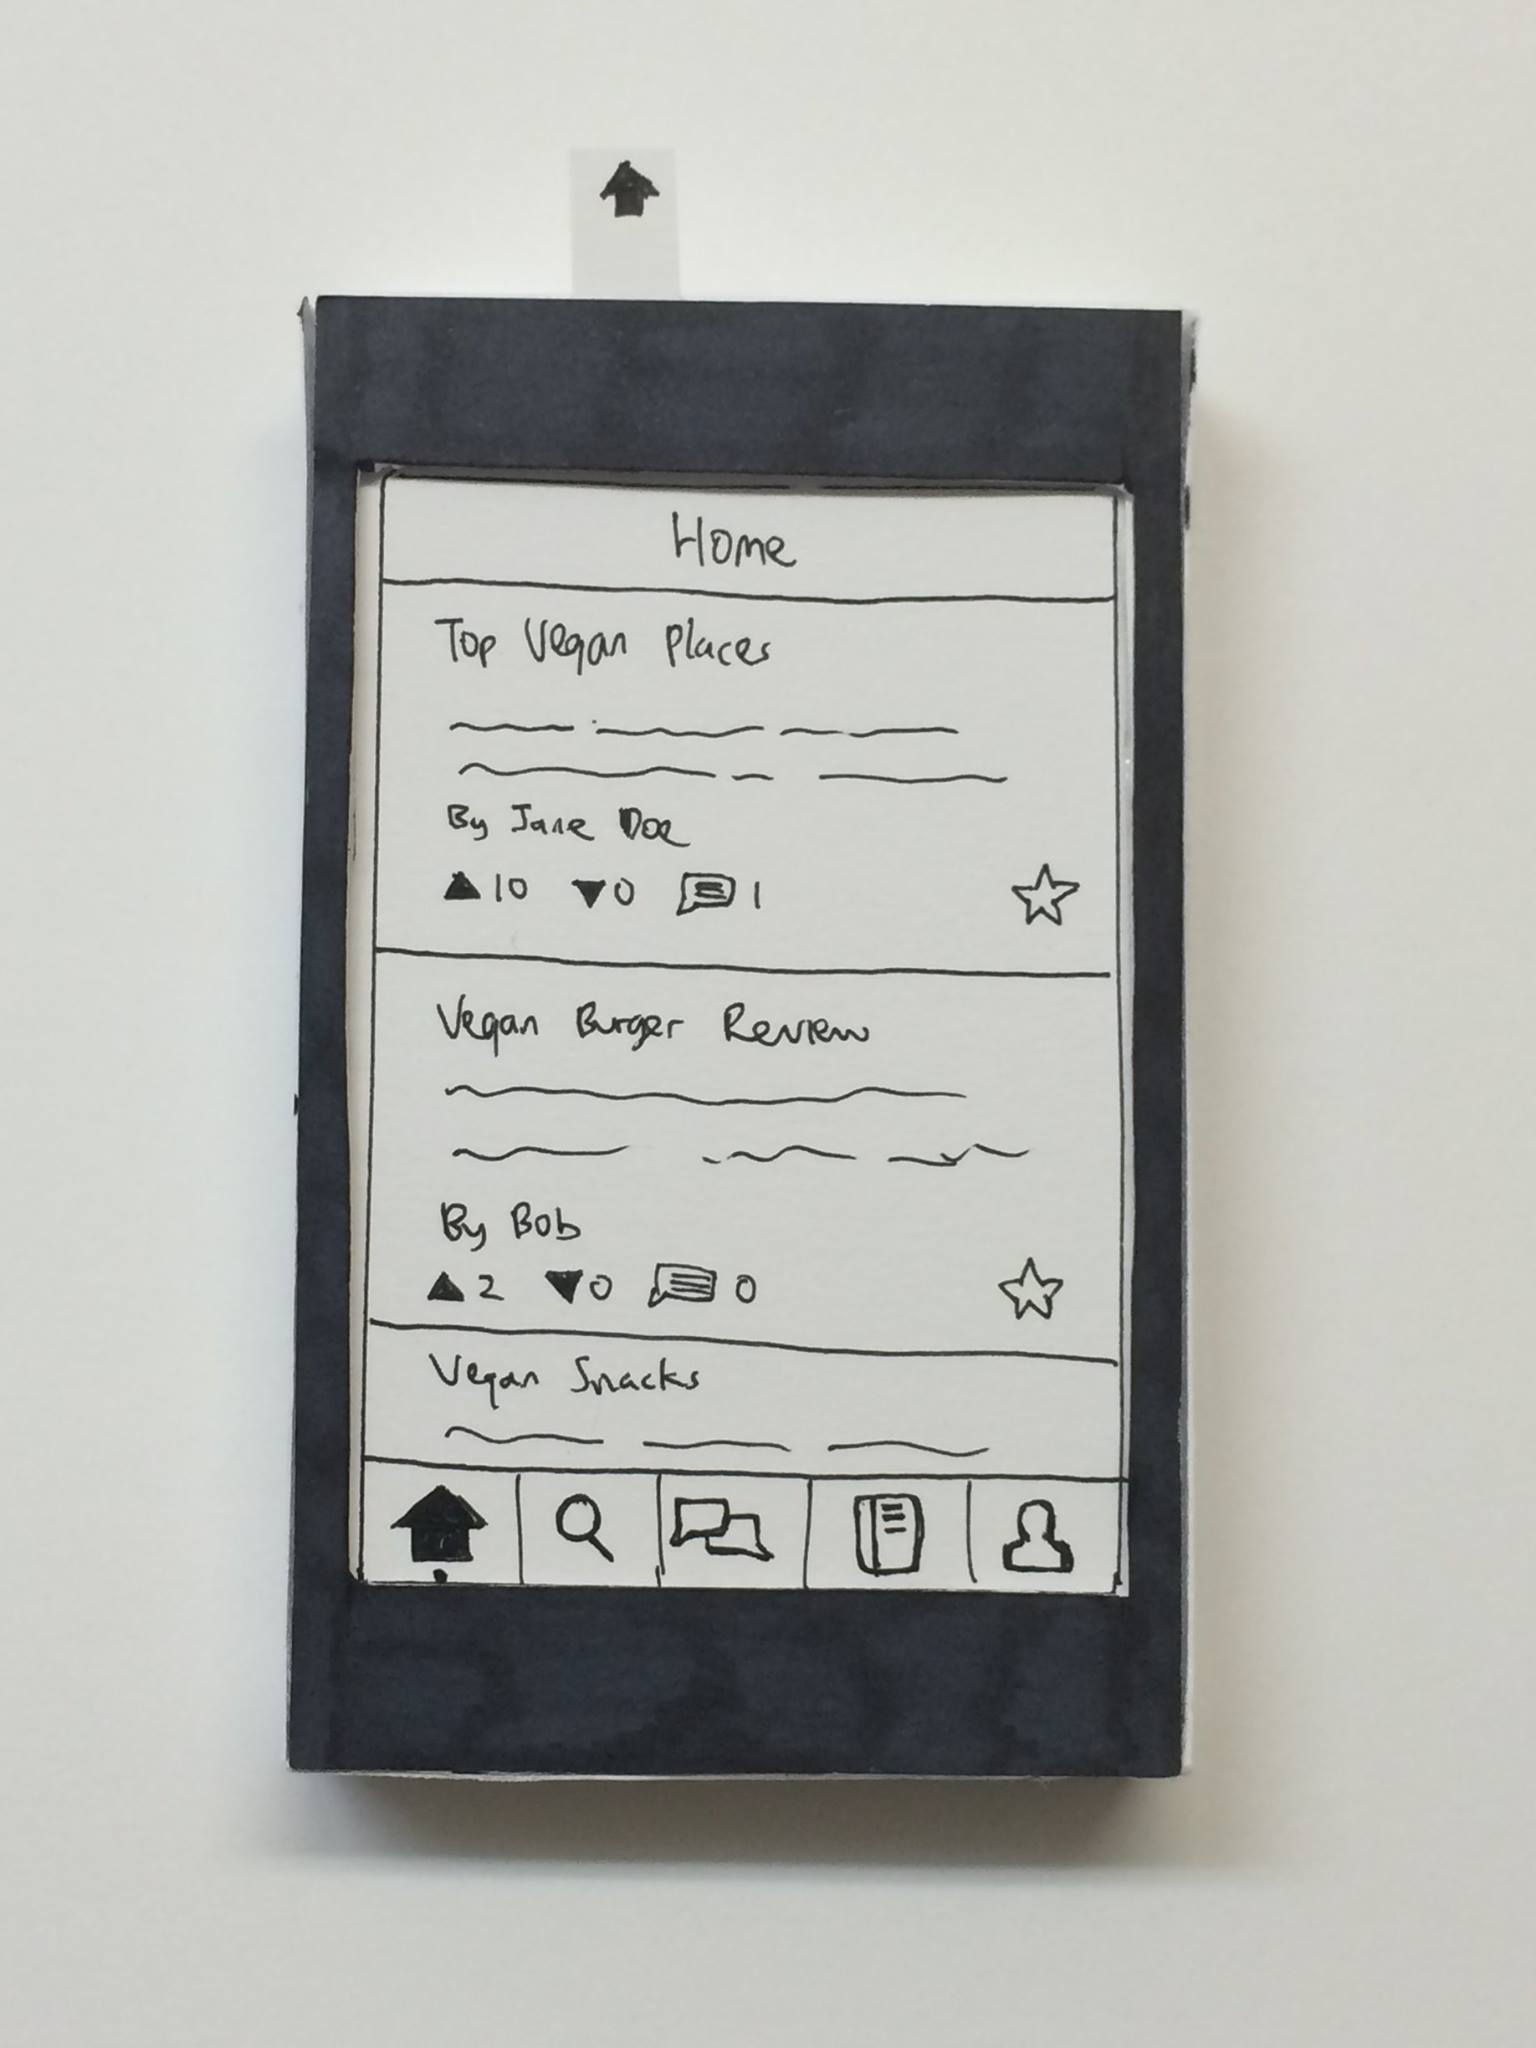 Home
Top Vegan Places
By Jane Doe
10 0 1
Vegan Burger Review
By Bob
2 0 0
Vegan Snacks